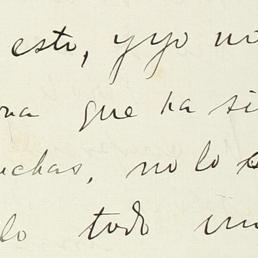 esto, y yo no
que ha si
uchas, no lo
lo todo un